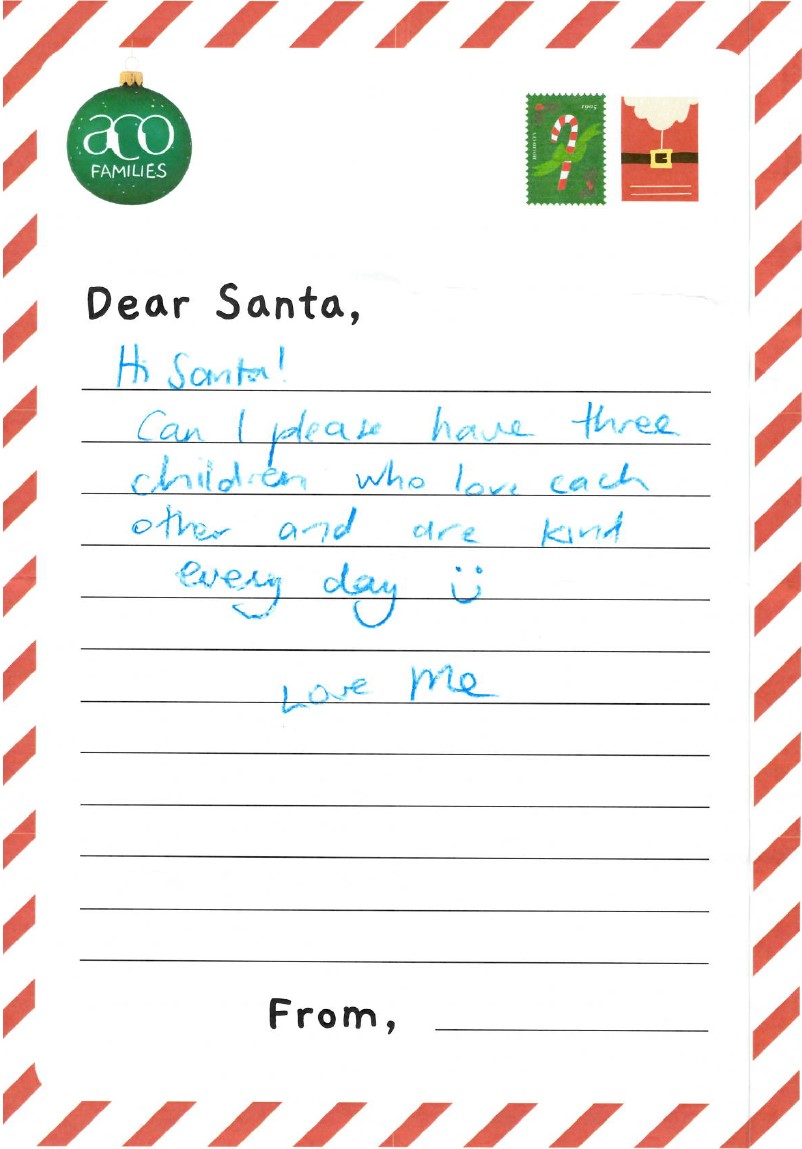 aco
FAMILIES
1995
Dear Santa,
Hi Santa!
Can I please have three
children who love each
other and are kind
every day ü
Love Me
From,